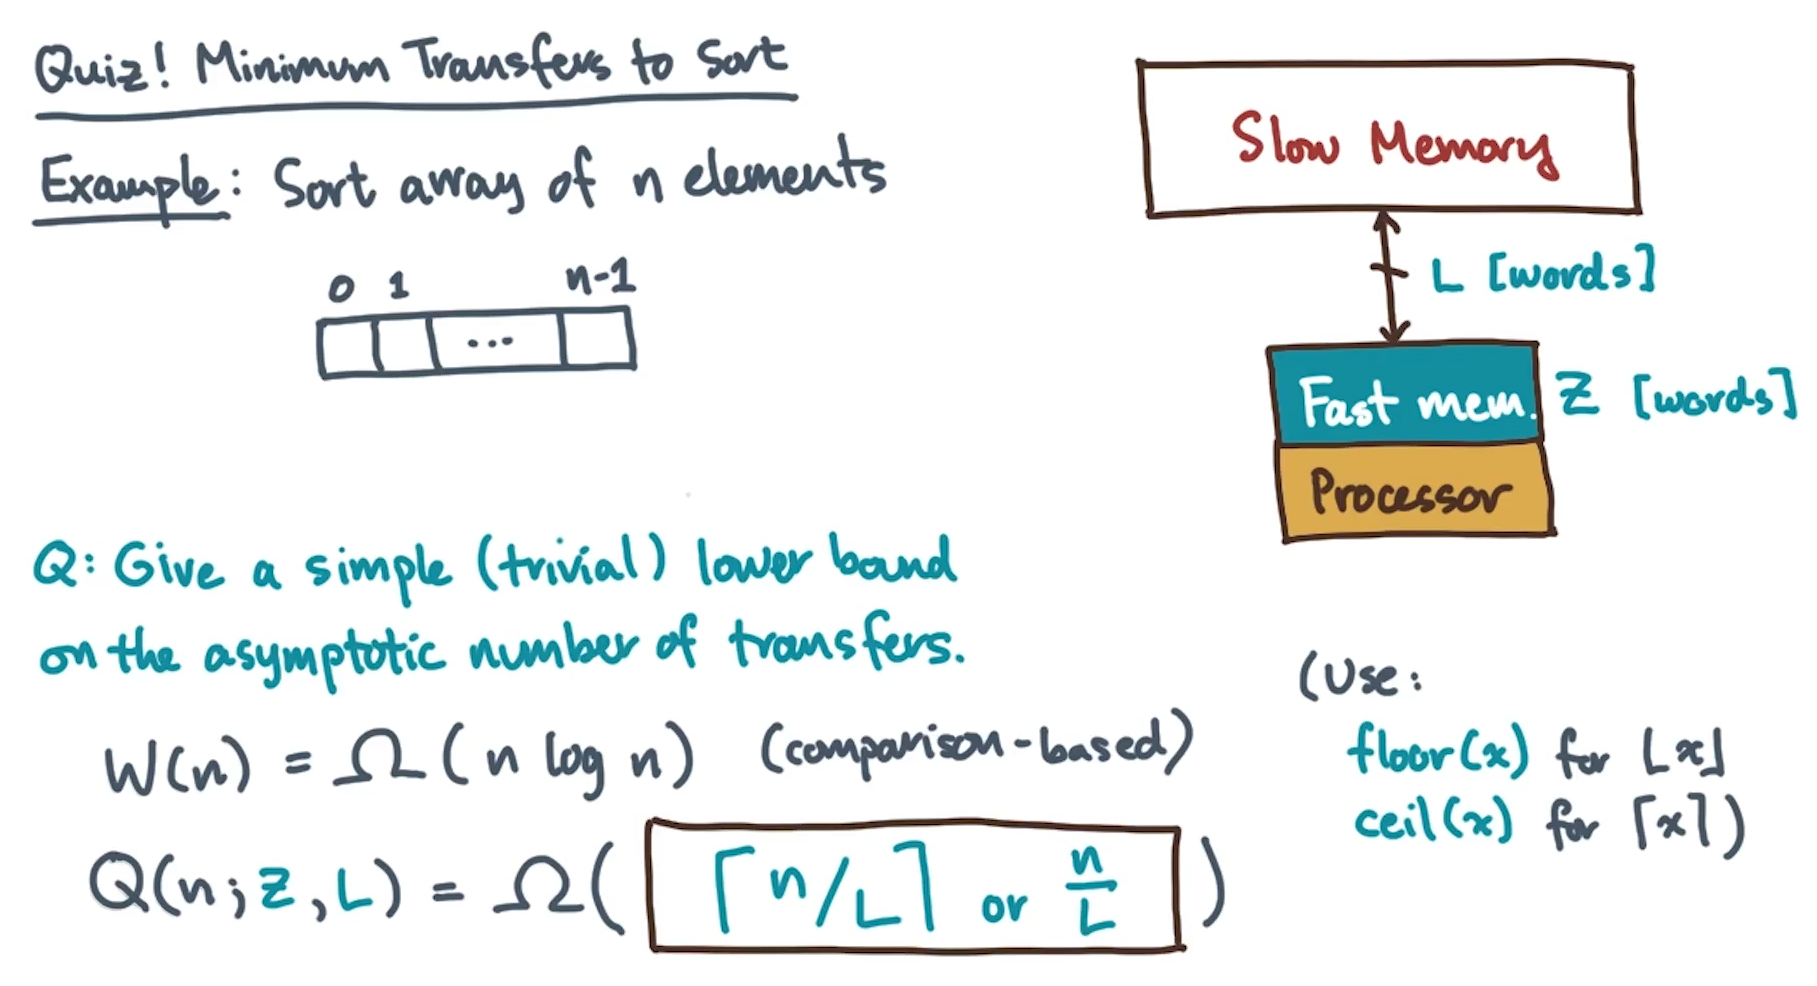 Quiz! Minimum Transfers to Sort
Example: Sort array of n elements
0 1 n-1
...
Slow Memory
L [words]
Fast mem. Z [words]
Processor
Q: Give a simple (trivial) lower bound
on the asymptotic number of transfers.
W(n) = Ω(n log n) (comparison-based)
Q(n; Z, L) = Ω(⌈n/L⌉ or n/L)
(Use:
floor(x) for ⌊x⌋
ceil(x) for ⌈x⌉)